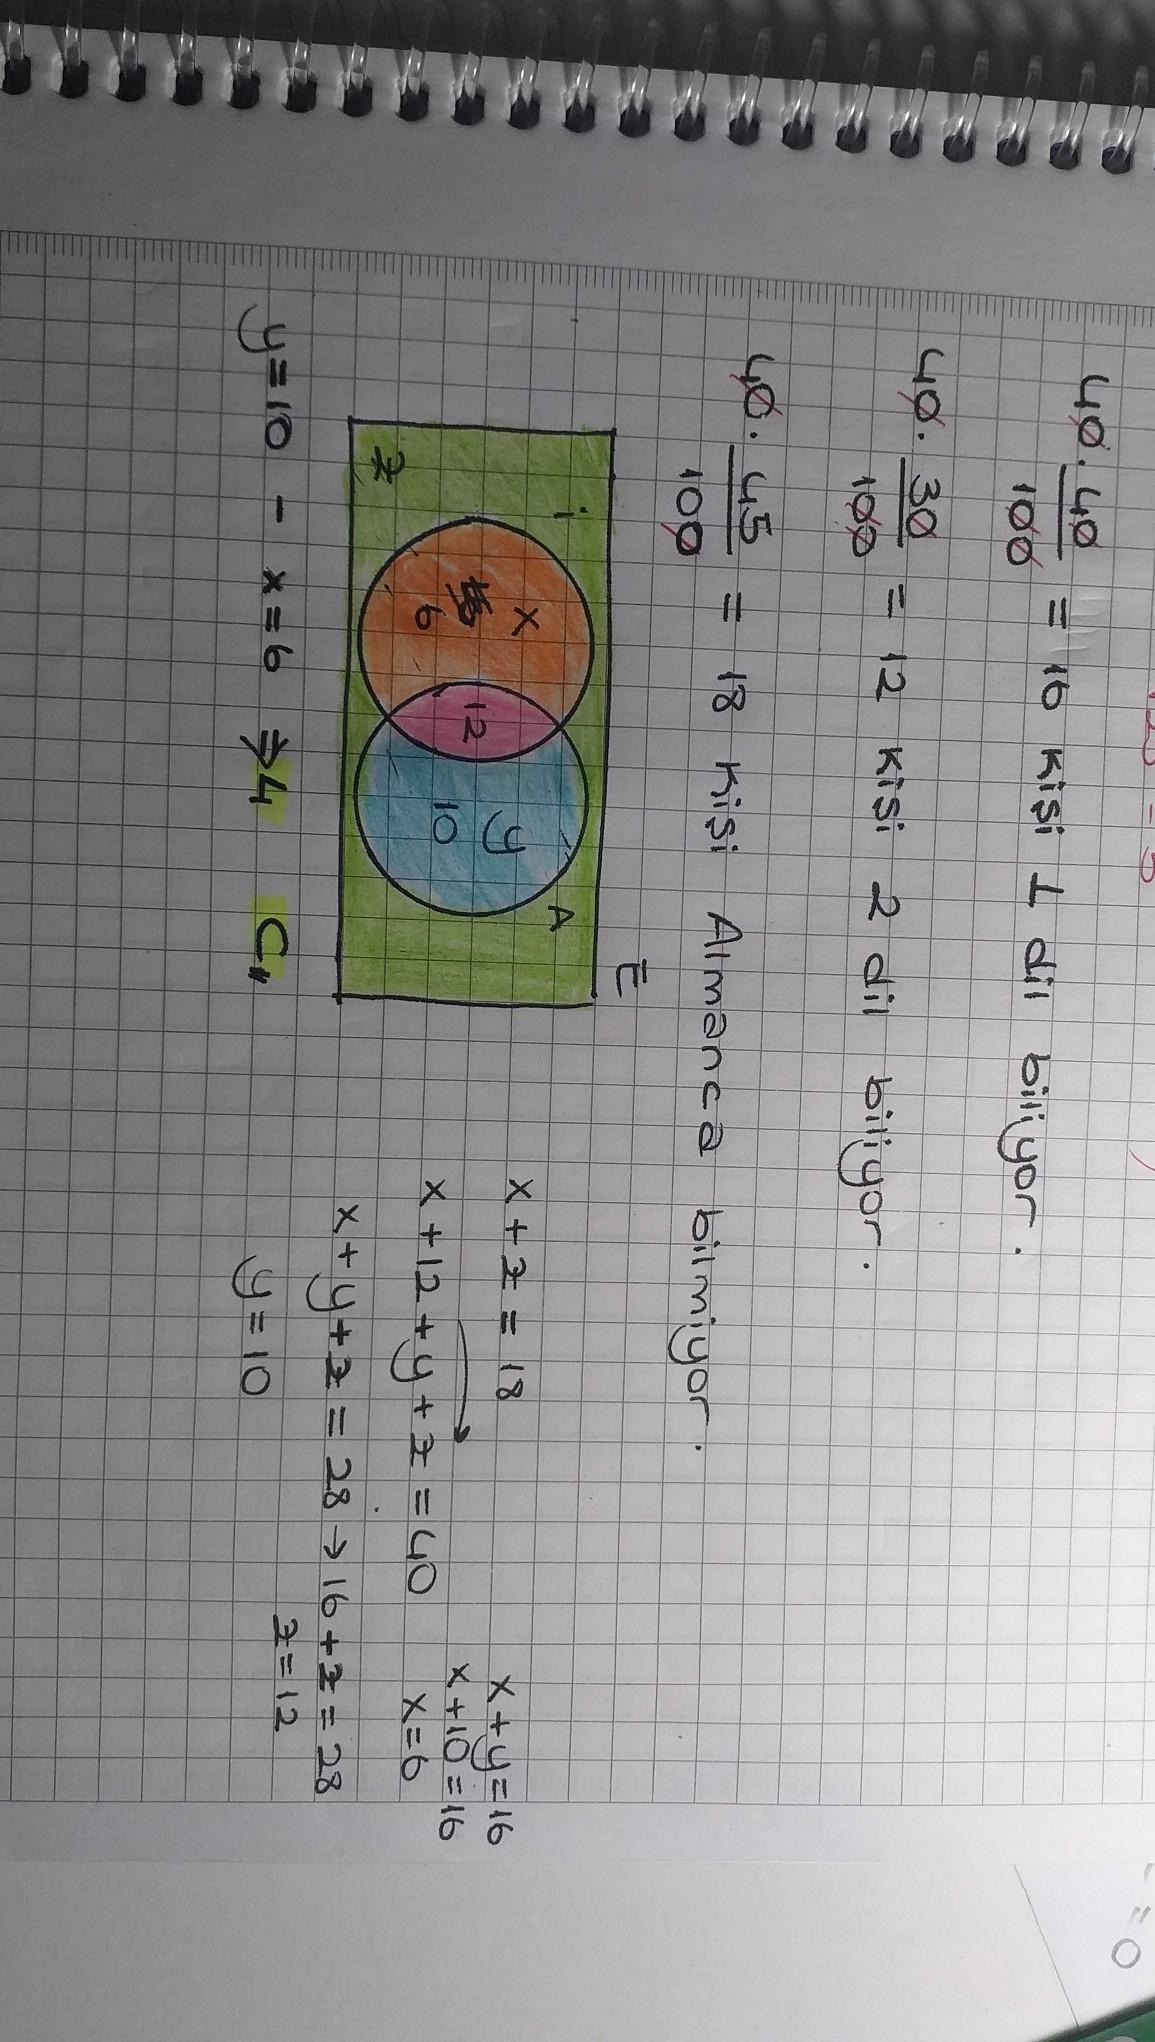 40 . 40/100 = 16 kişi 1 dil biliyor.
40 . 30/100 = 12 kişi 2 dil biliyor.
40 . 45/100 = 18 kişi Almanca bilmiyor.
E
i
A
x
6
12
y
10
z
x + z = 18
x + 12 + y + z = 40
x + y + z = 28 → 16 + z = 28
y = 10
z = 12
x + y = 16
x + 10 = 16
x = 6
y = 10 - x = 6 ⇒ 4 C
= 0